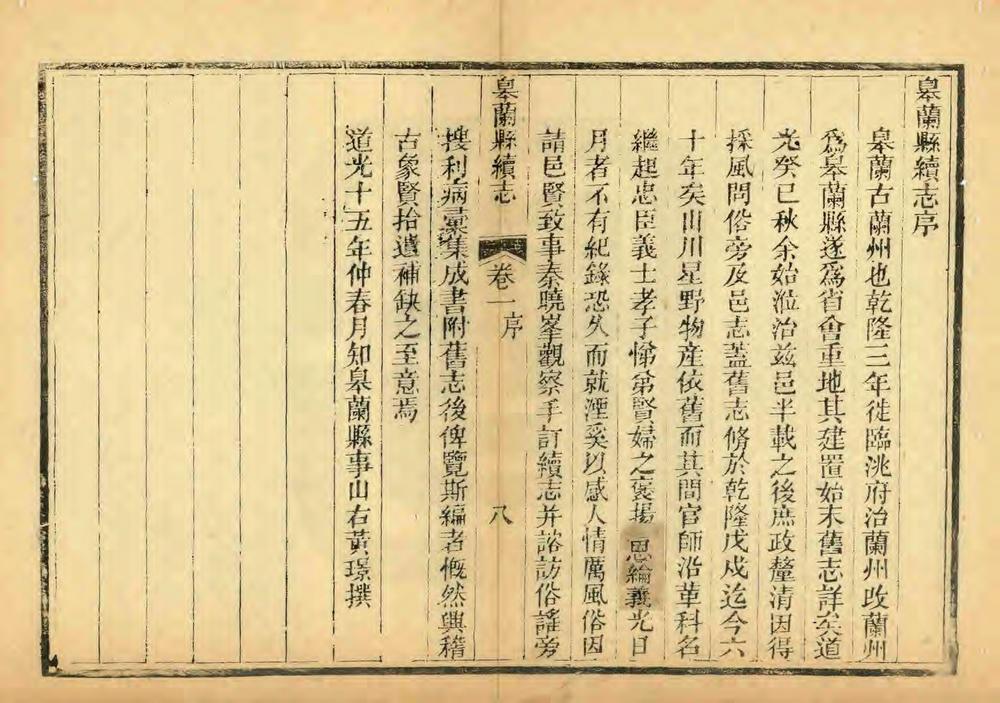 皋蘭縣續志序
皋蘭古蘭州也乾隆三年徙臨洮府治蘭州改蘭州
爲皋蘭縣遂爲省會重地其建置始末舊志詳矣道
光癸巳秋余始涖治兹邑半載之後庶政釐清因得
採風問俗旁及邑志蓋舊志脩於乾隆戊戌迄今六
十年矣山川星野物產依舊而其間官師沿革科名
繼起忠臣義士孝子悌弟賢婦之褒揚 恩綸義光日
月者不有紀錄恐久而就湮奚以感人情厲風俗因
請邑賢致事秦曉峯觀察手訂續志并諮訪俗謠旁
皋蘭縣續志 卷一序 八
搜利病彙集成書附舊志後俾覽斯編者慨然興稽
古象賢拾遺補缺之至意焉
道光十五年仲春月知皋蘭縣事山右黃璟撰